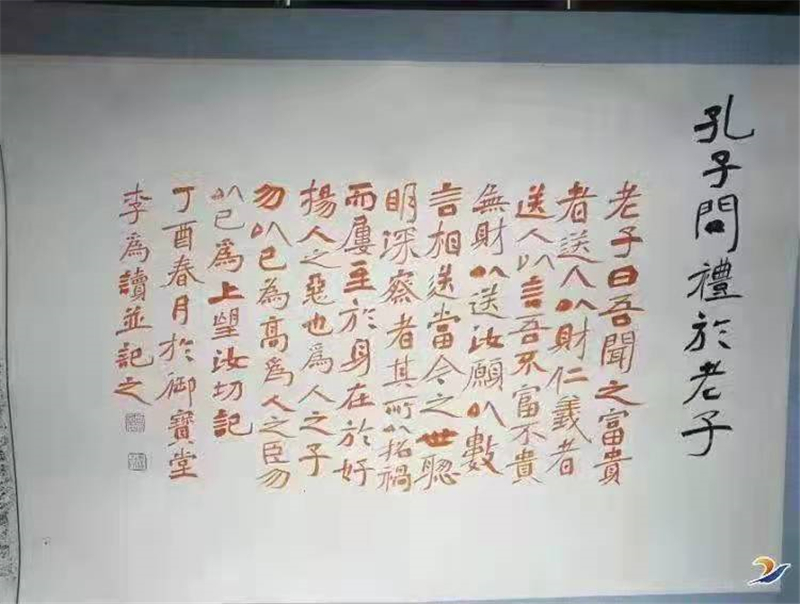 孔子問禮於老子
老子曰吾聞之富貴
者送人以財仁義者
送人以言吾不富不貴
無財以送汝願以數
言相送當今之世聰
明深察者其所以招禍
而屢至於身在於好
楊人之惡也為人之子
勿以己為高為人之臣勿
以己為上望汝切記
丁酉春月於御寶堂
李為讀並記之